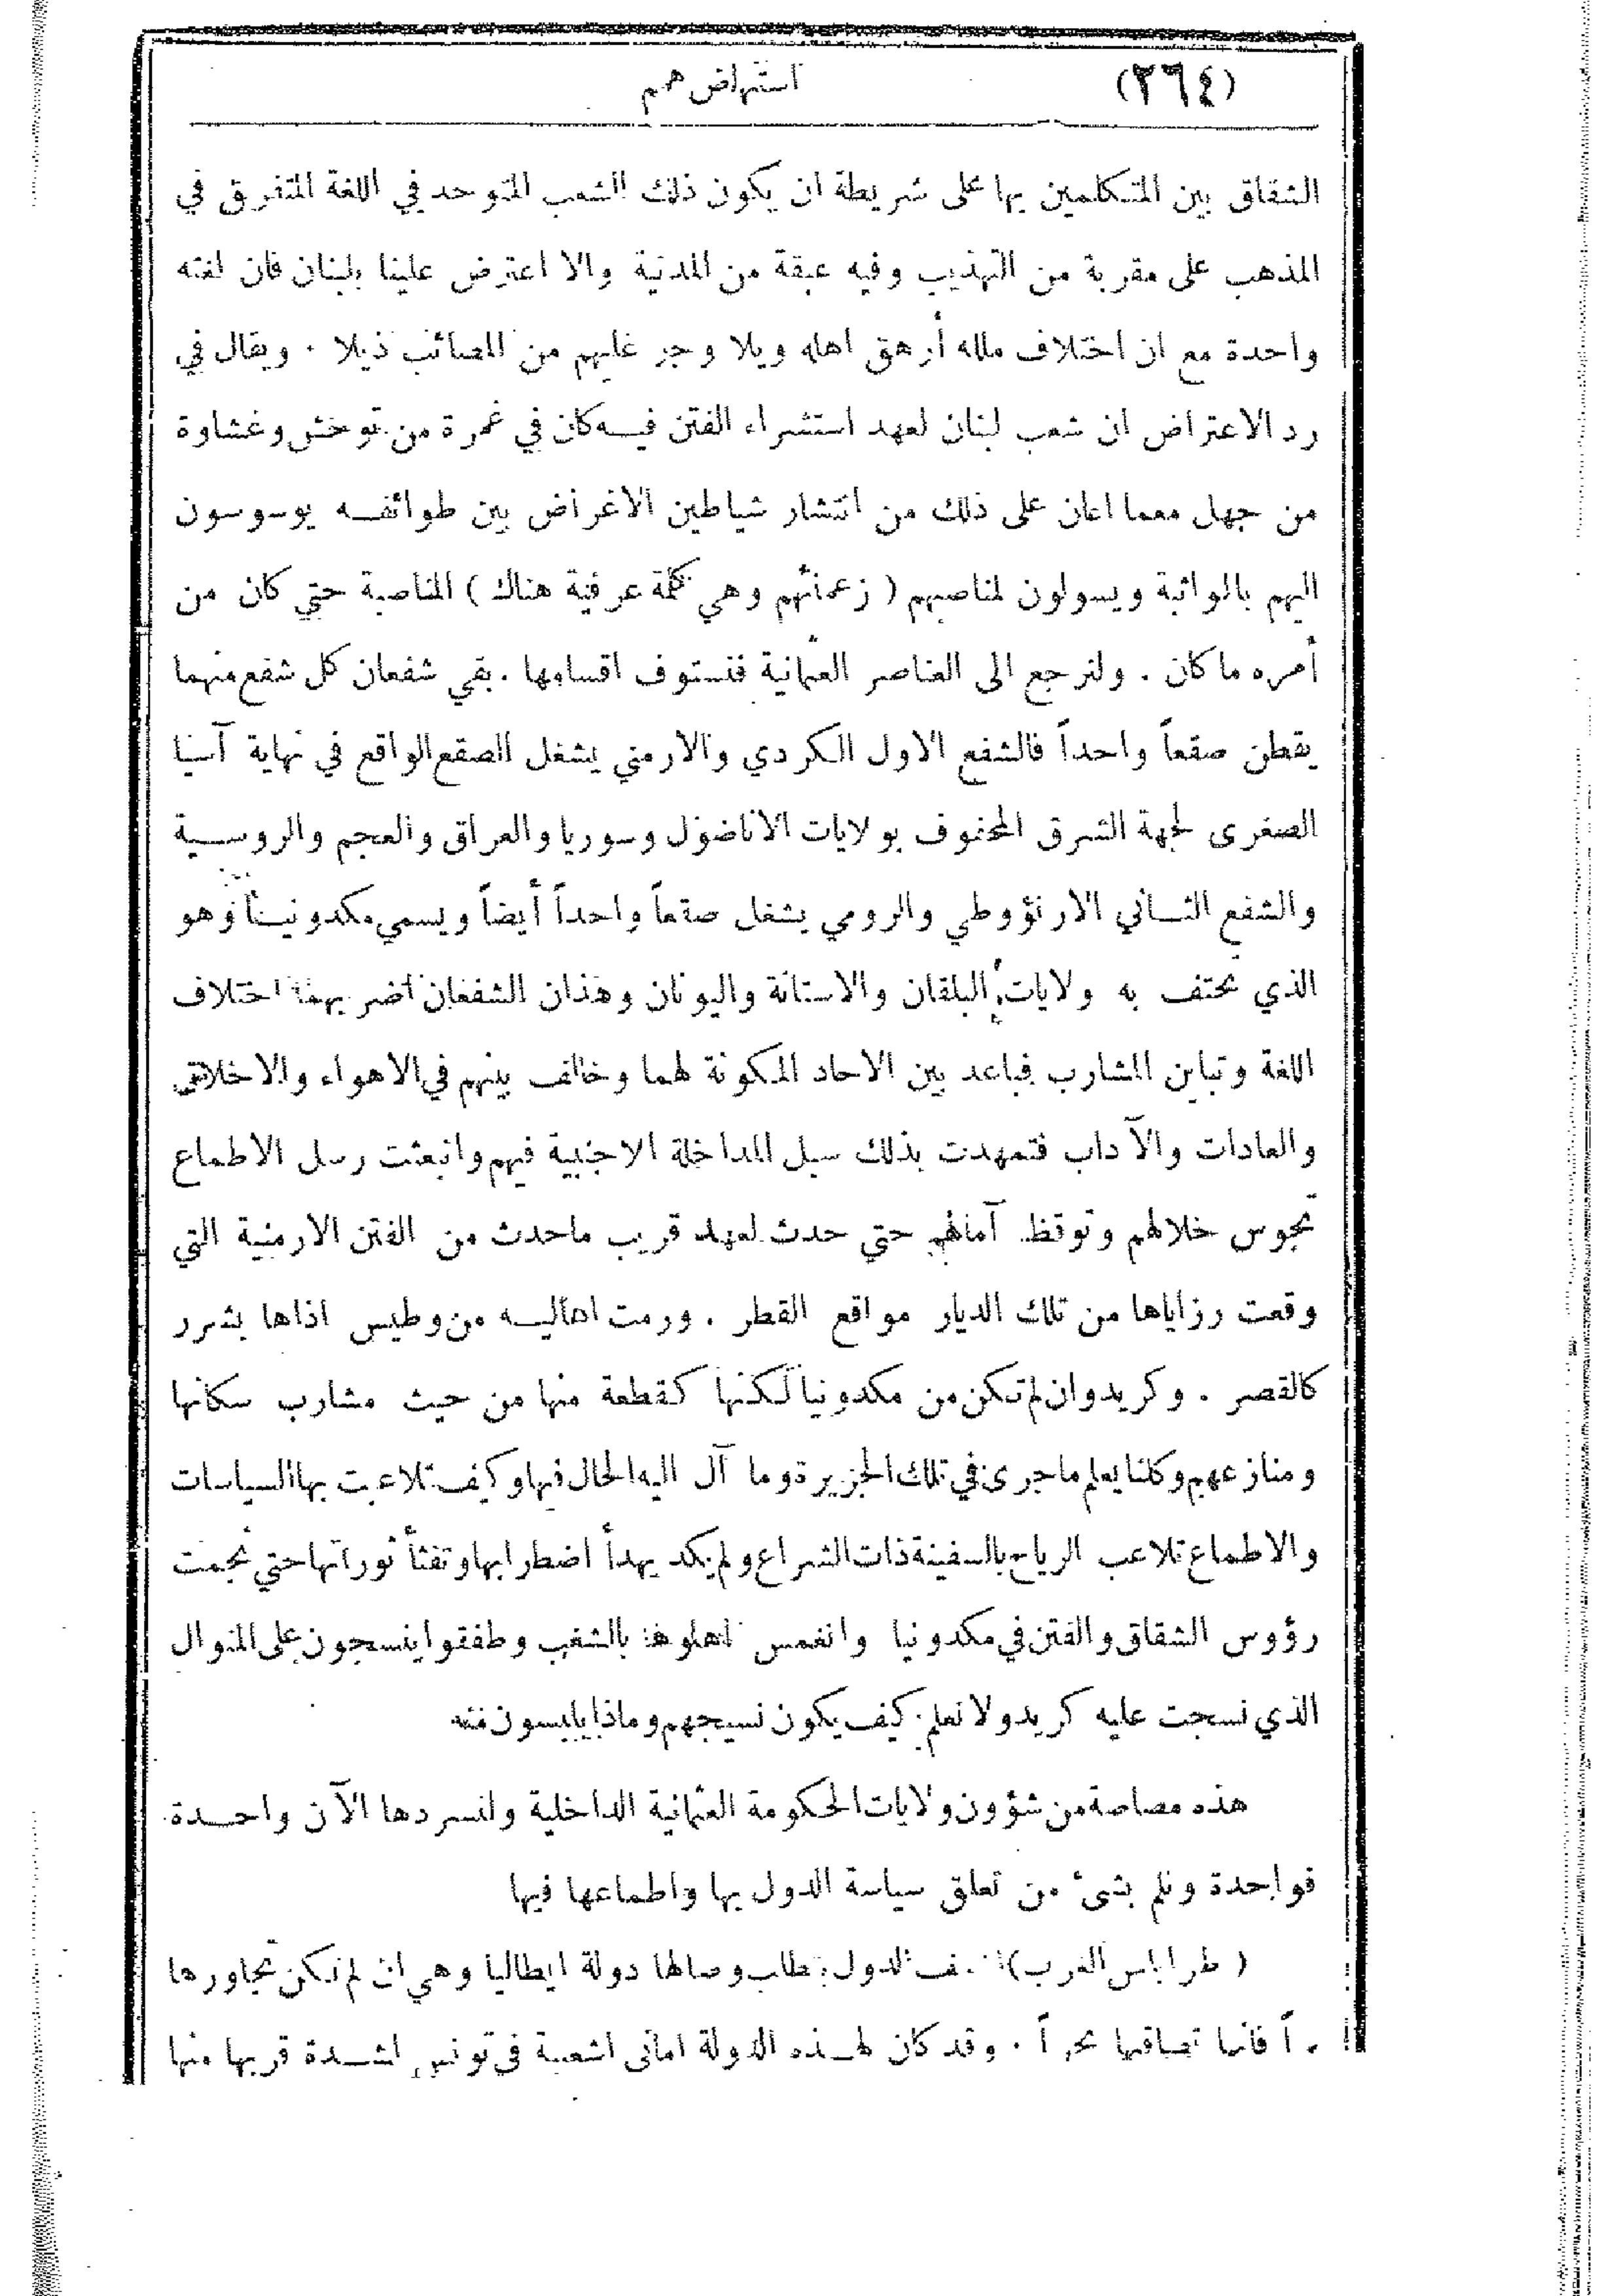 (٢٦٤) استنهاض همم
الشقاق بين المتكلمين بها على شريطة ان يكون ذلك الشعب المتوحد في اللغة المتفرق في
المذهب على مقربة من التهذيب وفيه عبقة من المدنية والا اعترض علينا بلبنان فان لغته
واحدة مع ان اختلاف ملله أرهق اهله ويلا وجر عليهم من المصائب ذيلا . ويقال في
رد الاعتراض ان شعب لبنان لعهد استشراء الفتن فيه كان في غمرة من توحش وغشاوة
من جهل معما اعان على ذلك من انتشار شياطين الاغراض بين طوائفه يوسوسون
اليهم بالواثبة ويسولون لمناصبهم ( زعمائهم وهي كلمة عرفية هناك ) المناصبة حتي كان من
أمره ما كان . ولنرجع الى العناصر العثمانية فنستوف اقسامها . بقي شفعان كل شفع منهما
يقطن صقعاً واحداً فالشفع الاول الكردي والارمني يشغل الصقع الواقع في نهاية آسيا
الصغرى لجهة الشرق المحفوف بولايات الاناضول وسوريا والعراق والعجم والروسية
والشفع الثاني الارنؤوطي والرومي يشغل صقعاً واحداً أيضاً ويسمي مكدونيا وهو
الذي تحتف به ولايات البلقان والاستانة واليونان وهذان الشفعان أضر بهما اختلاف
اللغة وتباين المشارب فباعد بين الاحاد المكونة لهما وخالف بينهم في الاهواء والاخلاق
والعادات والآداب فتمهدت بذلك سبل المداخلة الاجنبية فيهم وانبعثت رسل الاطماع
تجوس خلالهم وتوقظ آمالهم حتي حدث لعهد قريب ماحدث من الفتن الارمنية التي
وقعت رزاياها من تلك الديار مواقع القطر . ورمت اهاليه من وطيس اذاها بشرر
كالقصر . وكريد وان لم تكن من مكدونيا لكنها كقطعة منها من حيث مشارب سكانها
ومنازعهم وكلنا يعلم ماجرى في تلك الجزيرة وما آل اليه الحال فيها وكيف تلاعبت بها السياسات
والاطماع تلاعب الرياح بالسفينة ذات الشراع ولم يكد يهدأ اضطرابها وتفثأ ثوراتها حتي نجمت
رؤوس الشقاق والفتن في مكدونيا وانغمس اهلوها بالشغب وطفقوا ينسجون على المنوال
الذي نسجت عليه كريد ولا نعلم كيف يكون نسيجهم وماذا يلبسون منه
هذه مصاصة من شؤون ولايات الحكومة العثمانية الداخلية ولنسردها الآن واحدة
فواحدة ونلم بشئ من تعلق سياسة الدول بها واطماعها فيها
( طرابلس الغرب ) الدول بطلب وصالها دولة ايطاليا وهي ان لم تكن تجاورها
فانها تصاقبها بحراً . وقد كان لهذه الدولة اماني اشعبية في تونس لشدة قربها منها